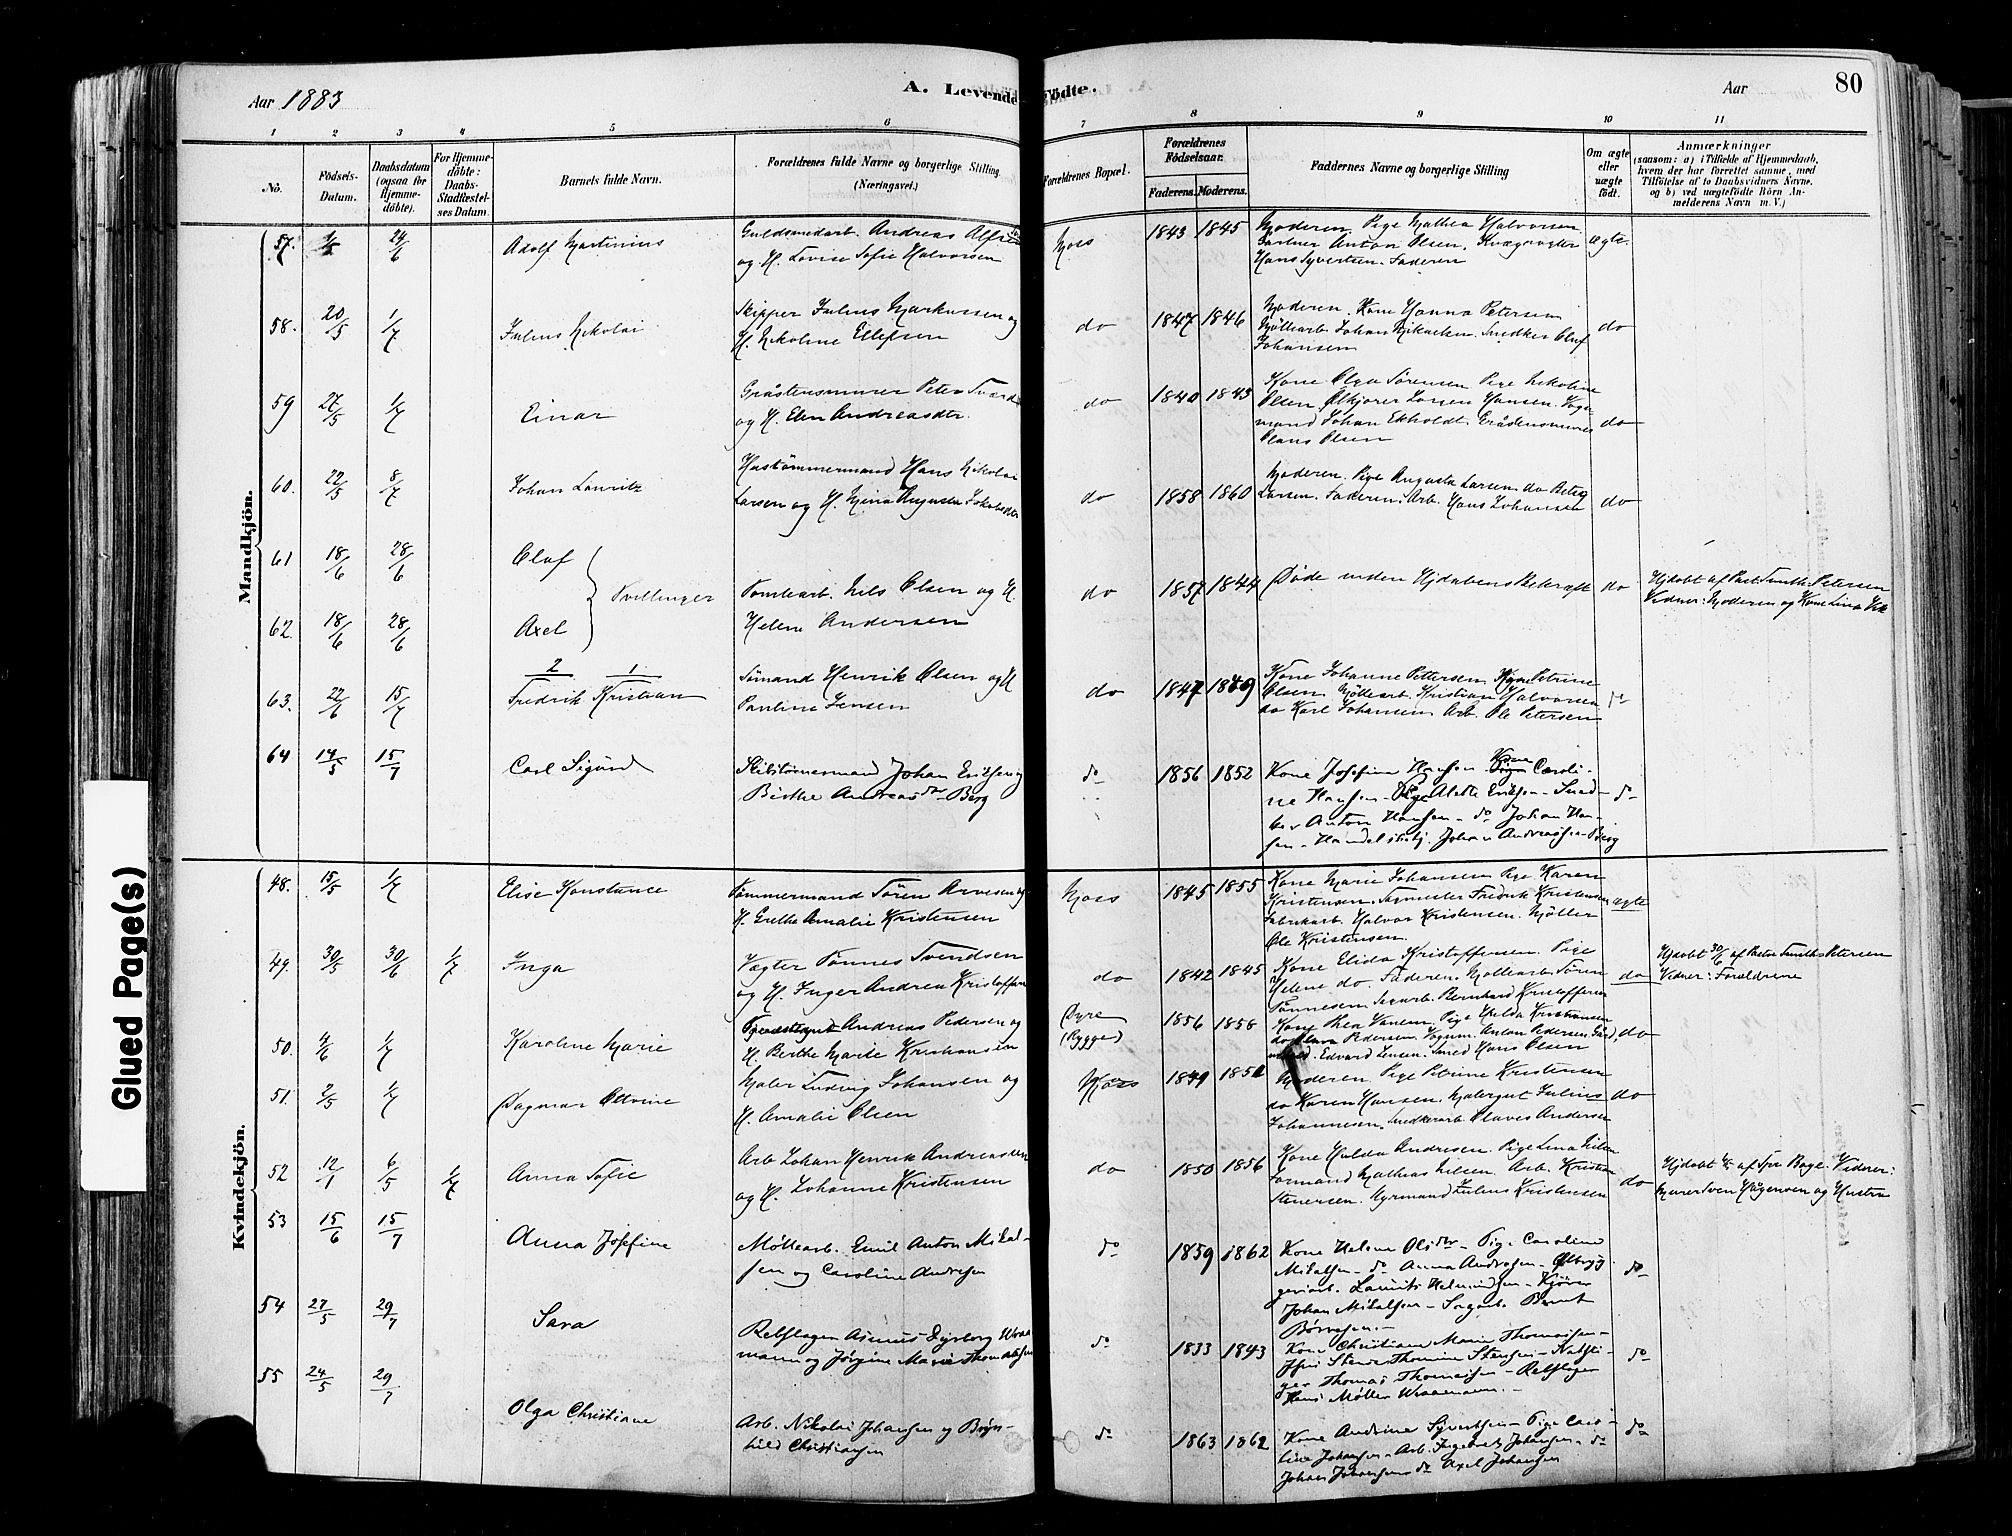 Aar 1883
A. Levende Fødte.
Aar
80
1 2 3 4 5 6 7 8 9 10 11
No.
Fødsels-
Datum.
Daabsdatum
(ogsaa for
Hjemme-
døbte).
For Hjemme-
døbte:
Daabs-
Stadfæstel-
ses Datum.
Barnets fulde Navn.
Forældrenes fulde Navne og borgerlige Stilling
(Næringsvei.)
Forældrenes Bopæl.
Forældrenes
Fødselsaar.
Faderens. Moderens.
Faddernes Navne og borgerlige Stilling
Om ægte
eller
uægte
født.
Anmærkninger
(saasom: a) i Tilfælde af Hjemmedaab,
hvem der har forrettet samme, med
Tilføielse af to Daabsvidners Navne.
og b) ved uægtefødte Børn An-
melderens Navn m. V.)
Mandkjön.
57. 24/6 Adolf Martinius
Guldsmedarb. Andreas Alfred
og H. Lovise Sofie Halvorsen
Moss 1843 1845
Moderen. Pige Mathea Halvorsen
Gartner Anton Olsen. Kvægrøgter
Hans Syvertsen. Faderen
ægte.
58. 20/5 1/7 Julius Nikolai
Skipper Julius Markussen og
H. Nikoline Ellefsen
do 1847 1846
Moderen. Kone Hanna Petersen
Møllearb. Johan Mikaelsen. Snedker Oluf
Johansen
do
59 27/5 1/7 Einar
Gråstensmurer Peter
og H. Elen Andreasdtr.
do 1840 1843
Kone Olga Sørensen Pige Nikoline
Olsen Ølkjører Lorsen Hansen. Vogn-
mand Johan Ekholdt. Gråstensmurer
Claus Olsen
do
60. 22/5 8/7 Johan Lauritz
Hustømmermand Hans Nikolai
Larsen og H. Mina Augusta Jakobsdtr
do 1858 1860
Moderen. Pige Augusta Larsen do Betsy
Larsen. Faderen. Arb. Hans Johansen
do
61 18/6 28/6 Olaf
Tvillinger
62. 18/6 28/6 Axel
Tomtearb. Nils Olsen og H.
Helene Andersen
do 1857 1844
Døde uden Hjdabens Bekræft
do
Hjdøbt af Past. Smith-Petersen
Vidner: Moderen og Kone Lina
63. 22/6 15/7
2 1
Fredrik Kristian
Sømand Henrik Olsen og H
Pauline Jensen
do 1847 1849
Kone Johanne Pettersen Kone Petrine
Olsen Møllearb. Kristian Halvorsen
do Karl Johansen Arb. Ole Petersen
do
64 14/5 15/7 Carl Sigurd
Skibstømmermand Johan Eriksen og
Birthe Andreasdtr Berg
do 1856 1852
Kone Josefine Hansen Kone Caroli-
ne Hansen - Pige Alette Eriksen - Sned-
ker Anton Hansen - do Johan Han-
sen - Handelsbetj. Johan Andreassen Berg
do
Kvindekjön.
48. 15/5 1/7 Elise Konstance
Tømmermand Søren Arvesen og
H. Grethe Amalie Kristensen
Moss 1845 1855
Kone Marie Johansen Pige Karen
Kristensen. Sagmester Fredrik Kristensen
Fabrikarb. Halvor Kristensen. Møller
Ole Kristensen.
ægte
49. 30/5 30/6 1/7 Inga
Vægter Tønnes Svendsen
og H. Inger Andrea Kristoffersen
do 1842 1845
Kone Elida Kristoffersen Pige
Helene do. Faderen. Møllearb. Søren
Tønnesen. Sagarb. Bernhard Kristoffersen
do
Hjdøbt 30/6 af Pastor Smith-Petersen
Vidner: Forældrene
50. 4/6 1/7 Karoline Marie
Andreas Pedersen og
H. Berthe Marie Kristiansen
Dyre
(Rygge)
1856 1858
Kone Thea Pige Hulda Kristiansen
do Klara Pedersen. Vognm. Anton Pedersen
Edvard Jensen. Smed Hans Olsen
do
51. 2/5 1/7 Dagmar Otteine
Maler Ludvig Johansen og
H. Amalie Olsen
Moss 1849 1851
Moderen. Pige Petrine Kristensen
do Karen Hansen. Malergut Julius
Johannesen. Snedkerarb. Olaves Andersen
do
52 12/1 6/5 1/7 Anna Sofie
Arb Johan Henrik Andreassen
og H. Johanne Kristensen
do 1850 1856
Kone Hulda Andresen. Pige Lina Nilsen
Formand Mathias Nilsen. Arb. Kristian
Stenersen. Styrmand Julius Kristensen
do
Hjdøbt af Spr Boge. Vidner:
Murer Sven Haugenven og Hustru
53 15/6 15/7 Anna Josefine
Møllearb. Emil Anton Mikal-
sen og Caroline Andresen
do 1859 1862
Kone Helene Olsdtr - Pige Caroline
Mikalsen - do Anna Andresen - Ølbrygg
geriarb. Laurits Helmindsen - Kjører
Johan Mikalsen - Sagarb. Bernt
Børresen. -
do
54 27/5 29/7 Sara
Rebslager Asmus Dyrborg Wraa
mann og Jørgine Marie Thomassen
do 1833 1843
Kone Christiane Marie Thomassen -
Thomine Stensen -
Thomas Thomassen - Rebslager
Hans Møller Wraamann. -
do
55 24/5 29/7 Olga Christiane
Arb. Nikolai Johansen og Bryn-
hild Christiansen
do 1863 1862
Kone Andrine Syvertsen - Pige Caro-
line Johansen - Arb. Ingebret Johansen - do
Johan Johansen do Axel Johansen
do
Glued Page(s)